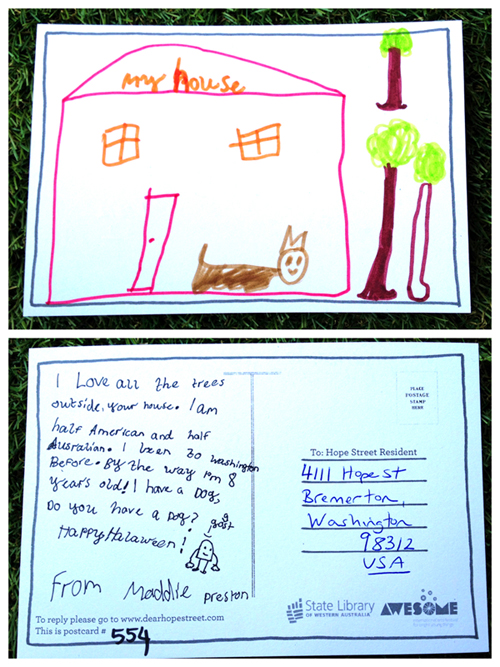 my house
I Love all the trees
outside, your house. I am
half American and half
Australian. I been to washington
Before. By the way I'm 8
years old! I have a DOg,
Do you have a Dog?
a gost
Happy Halaween!
From Maddie Preston
To reply please go to www.dearhopestreet.com
This is postcard # 554
PLACE
POSTAGE
STAMP
HERE
To: Hope Street Resident
4111 Hope st
Bremerton,
Washington
98312
USA
State Library
OF WESTERN AUSTRALIA
AWESOME